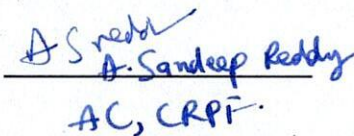 A S redd
A. Sandeep Reddy
AC, CRPF.